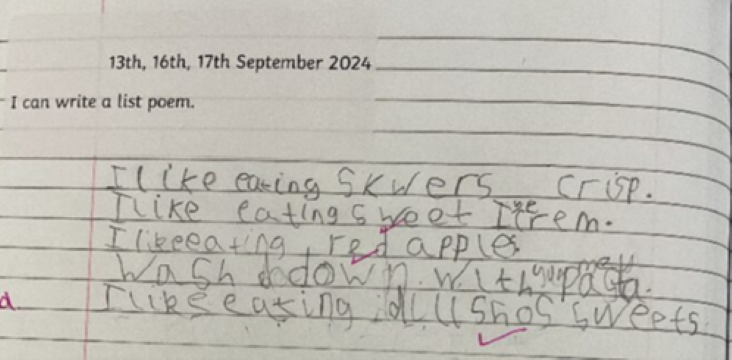 13th, 16th, 17th September 2024
I can write a list poem.
I like eating Skwers crisp.
I like eating sweet
I likeeating red apples
Wash down with
d I like eating dillishos sweets